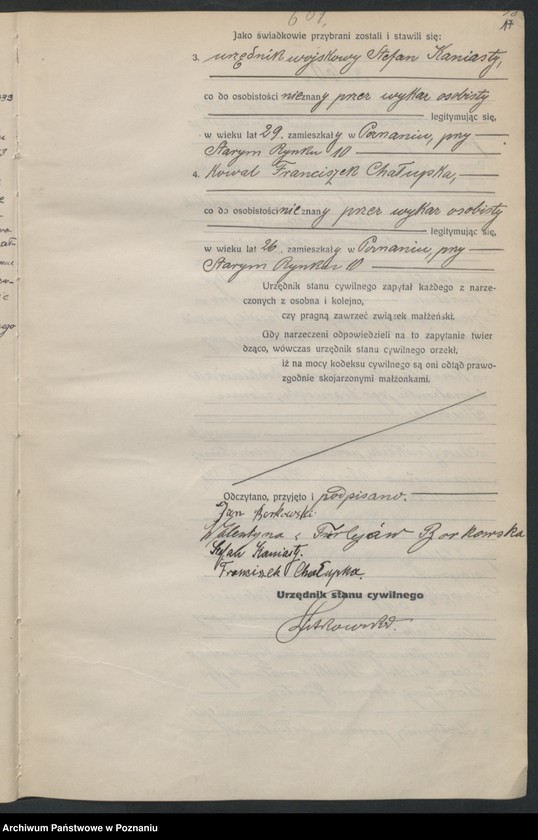 601.
17
Jako świadkowie przybrani zostali i stawili się:
3. urzędnik wojskowy Stefan Kaniasty,
co do osobistości nieznany przez wykaz osobisty
legitymując się,
w wieku lat 29, zamieszkały w Poznaniu, przy
Starym Rynku 10
4. Kowal Franciszek Chałupka,
co do osobistości nieznany przez wykaz osobisty
legitymując się,
w wieku lat 26, zamieszkały w Poznaniu, przy
Starym Rynku 10
Urzędnik stanu cywilnego zapytał każdego z narze-
czonych z osobna i kolejno,
czy pragną zawrzeć związek małżeński.
Gdy narzeczeni odpowiedzieli na to zapytanie twier
dząco, wówczas urzędnik stanu cywilnego orzekł,
iż na mocy kodeksu cywilnego są oni odtąd prawo-
zgodnie skojarzonymi małżonkami.
Odczytano, przyjęto i podpisano.
Jan Borkowski.
Walentyna z Borkowska
Stefan Kaniasty.
Franciszek Chałupka.
Urzędnik stanu cywilnego
Archiwum Państwowe w Poznaniu